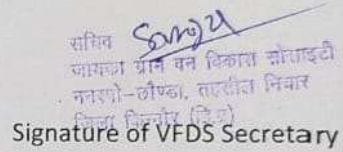 सचिव Sanju
जायका ग्राम वन विकास सोसाइटी
तहसील निचार
जिला किन्नौर (हि.प्र)
Signature of VFDS Secretary